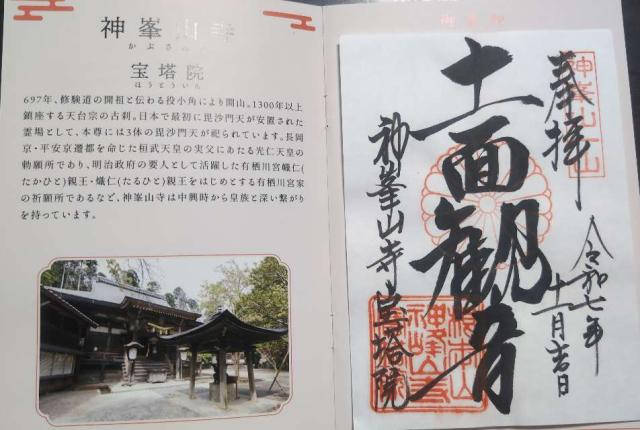 神峯山寺
かぶさんじ
宝塔院
ほうとういん
697年、修験道の開祖と伝わる役小角により開山。1300年以上
鎮座する天台宗の古刹。日本で最初に毘沙門天が安置された
霊場として、本尊には3体の毘沙門天が祀られています。長岡
京・平安京遷都を命じた桓武天皇の実父にあたる光仁天皇の
勅願所であり、明治政府の要人として活躍した有栖川宮幟仁
(たかひと)親王・熾仁(たるひと)親王をはじめとする有栖川宮家
の祈願所であるなど、神峯山寺は中興時から皇族と深い繋がり
を持っています。
奉拝
十一面観音
神峯山寺宝塔院
令和七年
十一月吉日